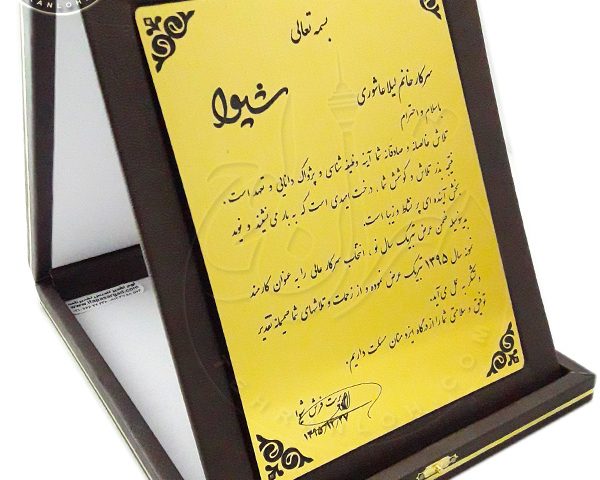 بسمه تعالی
شیوا
سرکار خانم لیلا عاشوری
با سلام و احترام
تلاش خالصانه و صادقانه شما آینه وظیفه شناسی و پژواک دانایی و تعهد است.
نتیجه بذر تلاش و کوشش شما، درخت امیدی است که به بار می نشیند و نوید
بخش آینده ای پر نشاط و زیباست.
بدینوسیله ضمن عرض تبریک سال نو، انتخاب سرکار عالی را به عنوان کارمند
نمونه سال ۱۳۹۵ تبریک عرض نموده و از زحمات و تلاشهای شما صمیمانه تقدیر
و تشکر به عمل می آید.
توفیق و سلامتی شما را از درگاه ایزد منان مسئلت داریم.
فرش شیوا
۱۳۹۵/۱۲/۲۷